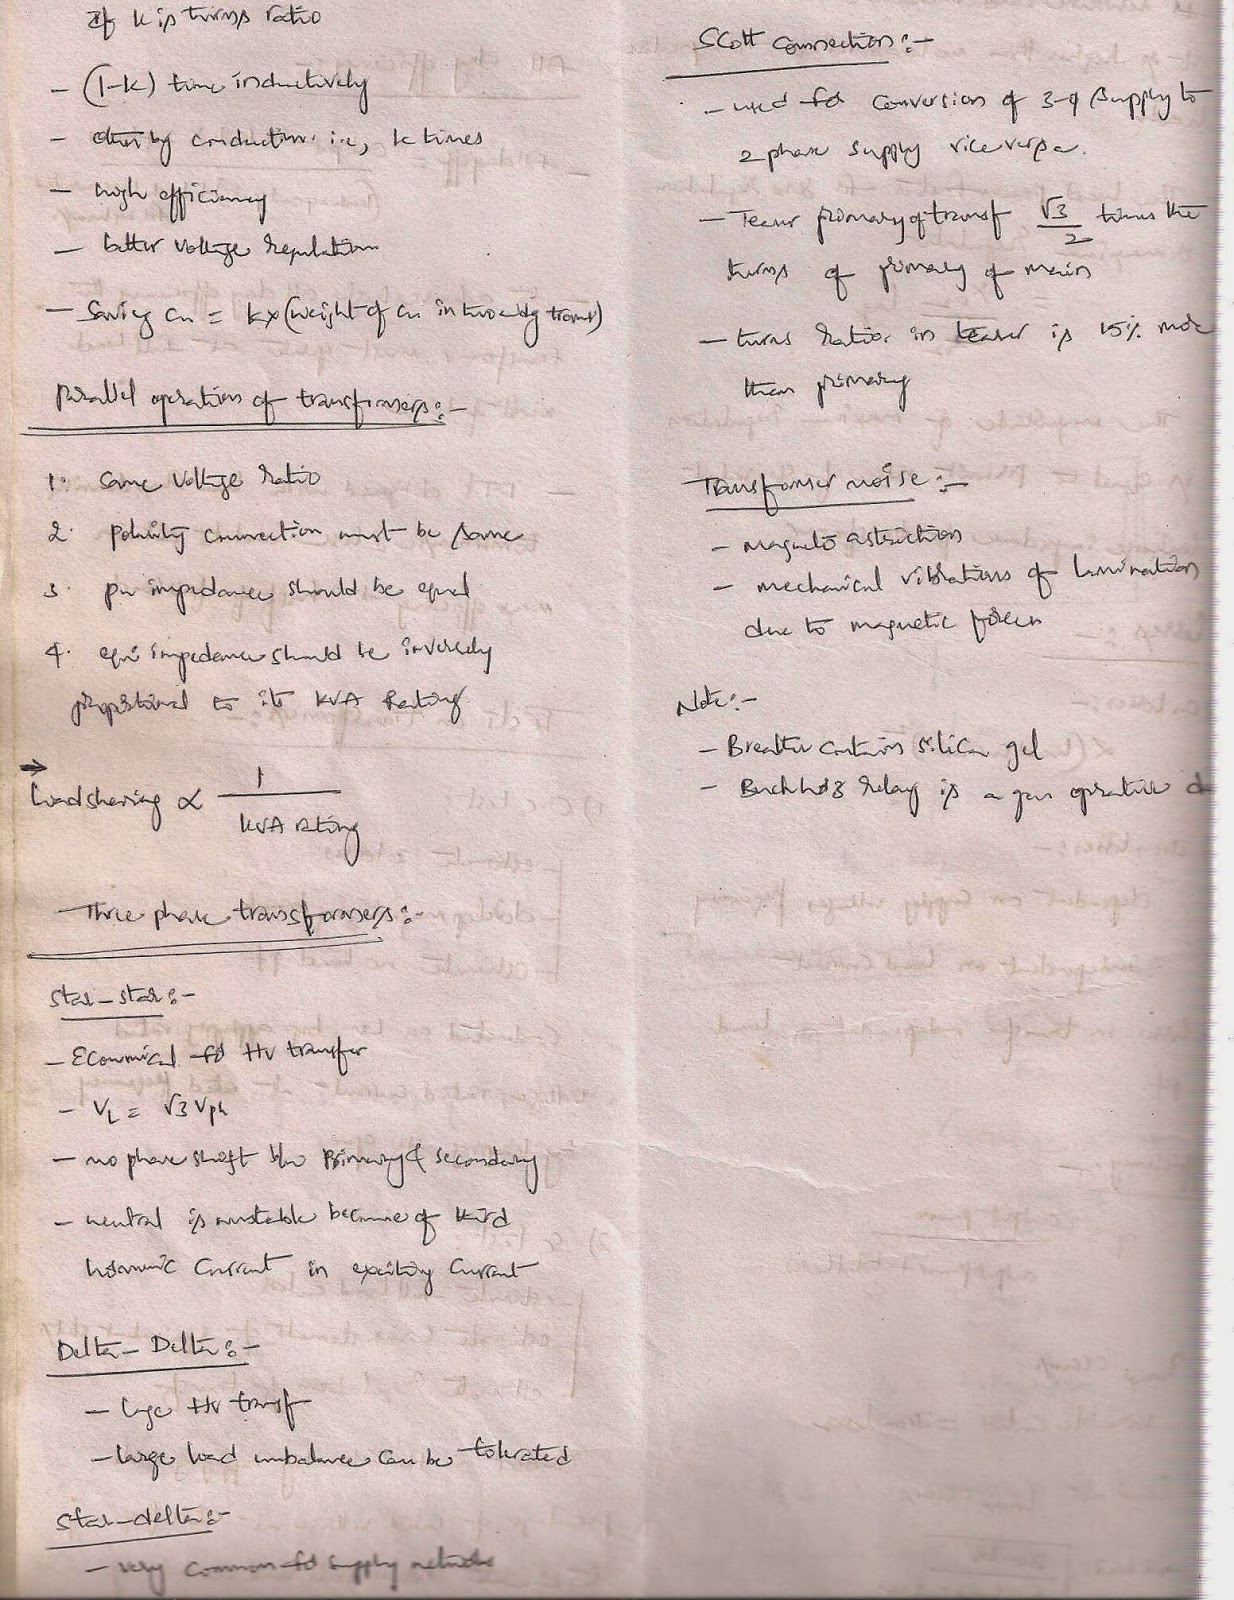 If k is turns ratio
- (1-k) time inductively
- other by conduction i.e., k times
- high efficiency
- better voltage regulation
- Saving cu = k×(weight of cu in two wdg transf)
Parallel operation of transformers:-
1. Same voltage ratio
2. polarity connection must be same
3. pu impedance should be equal
4. equi impedance should be inversely
proportional to its KVA Rating
→
Load sharing ∝ 1 / KVA rating
Three phase transformers:-
Star-star:-
- Economical for HV transfer
- VL = √3 Vph
- no phase shift b/w Primary & secondary
- neutral is unstable because of third
harmonic current in exciting current
Delta-Delta:-
- Large HV transf
- large load unbalance can be tolerated
Star-delta:-
- very common for supply networks
Scott connection:-
- used for conversion of 3-φ supply to
2 phase supply vice versa.
- Teaser primary of transf √3/2 times the
turns of primary of main
- turns ratio in teaser is 15% more
than primary
Transformer noise:-
- magneto striction
- mechanical vibrations of lamination
due to magnetic forces
Note:-
- Breather contains silica gel
- Buchholz relay is a gas operative